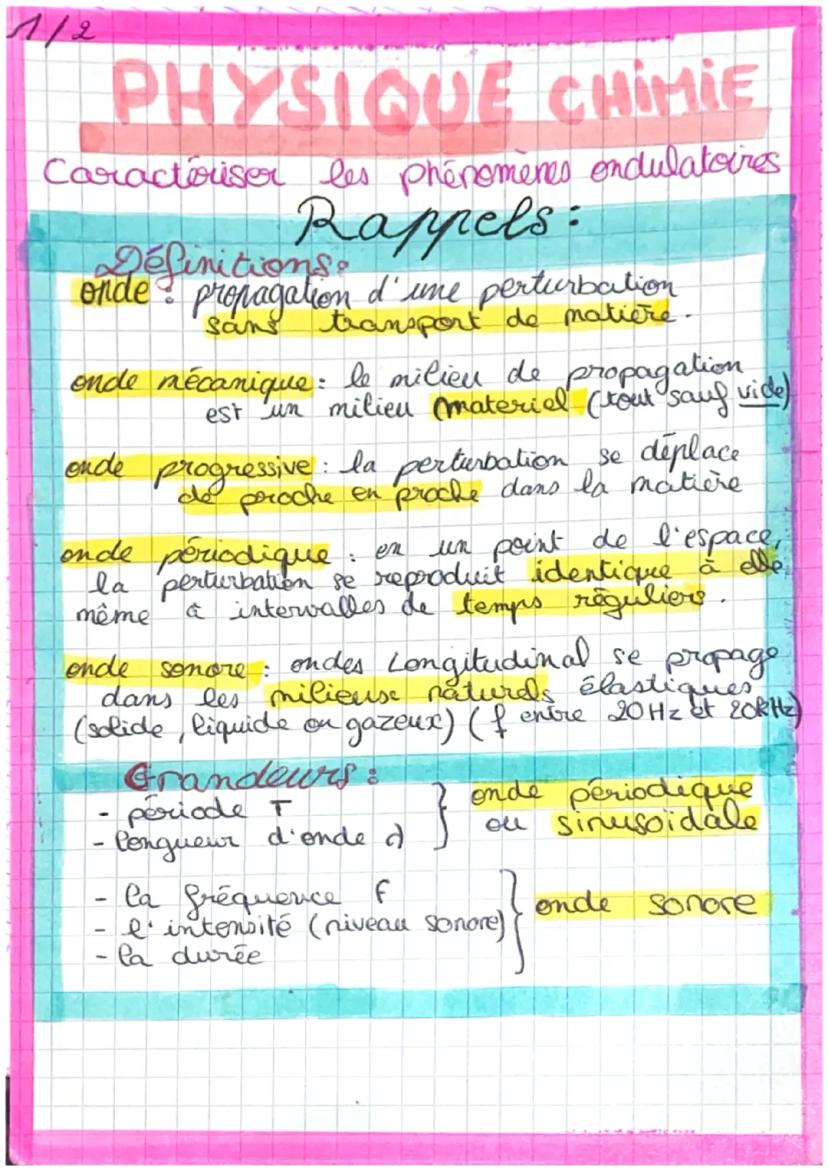 1/2
PHYSIQUE CHIMIE
Caractériser les phénomènes ondulatoires
Rappels :
Définitions :
onde : propagation d'une perturbation
sans transport de matière.
onde mécanique : le milieu de propagation
est un milieu materiel (tout sauf vide)
onde progressive : la perturbation se déplace
de proche en proche dans la matière
onde périodique : en un point de l'espace,
la perturbation se reproduit identique à elle
même à intervalles de temps réguliers.
onde sonore : ondes Longitudinal se propage
dans les milieuse naturels élastiques
(solide, liquide ou gazeux) (f entre 20Hz et 20kHz)
Grandeurs :
- période T } onde périodique
- longueur d'onde λ ou sinusoïdale
- la fréquence f
- l'intensité (niveau sonore) } onde sonore
- la durée